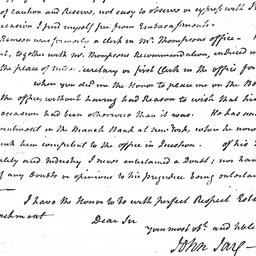 of caution and Reserve, not easy to observe or express with
occasion I find myself free from Embarrassments.
was formerly a clerk in Mr. Thompsons office
together with Mr. Thompsons Recommendation, induced
the place of under Secretary or first Clerk in the office for
when you did me the Honor to place me on the
the office, without having had Reason to wish that his
occasion had been otherwise than it was. He has
in the Branch Bank at New York, where he now
him competent to the office in Question. of his
and Industry I never entertained a Doubt; nor have
of any doubts or opinions to his prejudice being
I have the Honor to be with perfect Respect Esteem
Dear Sir
your most obt. and hble
John Jay